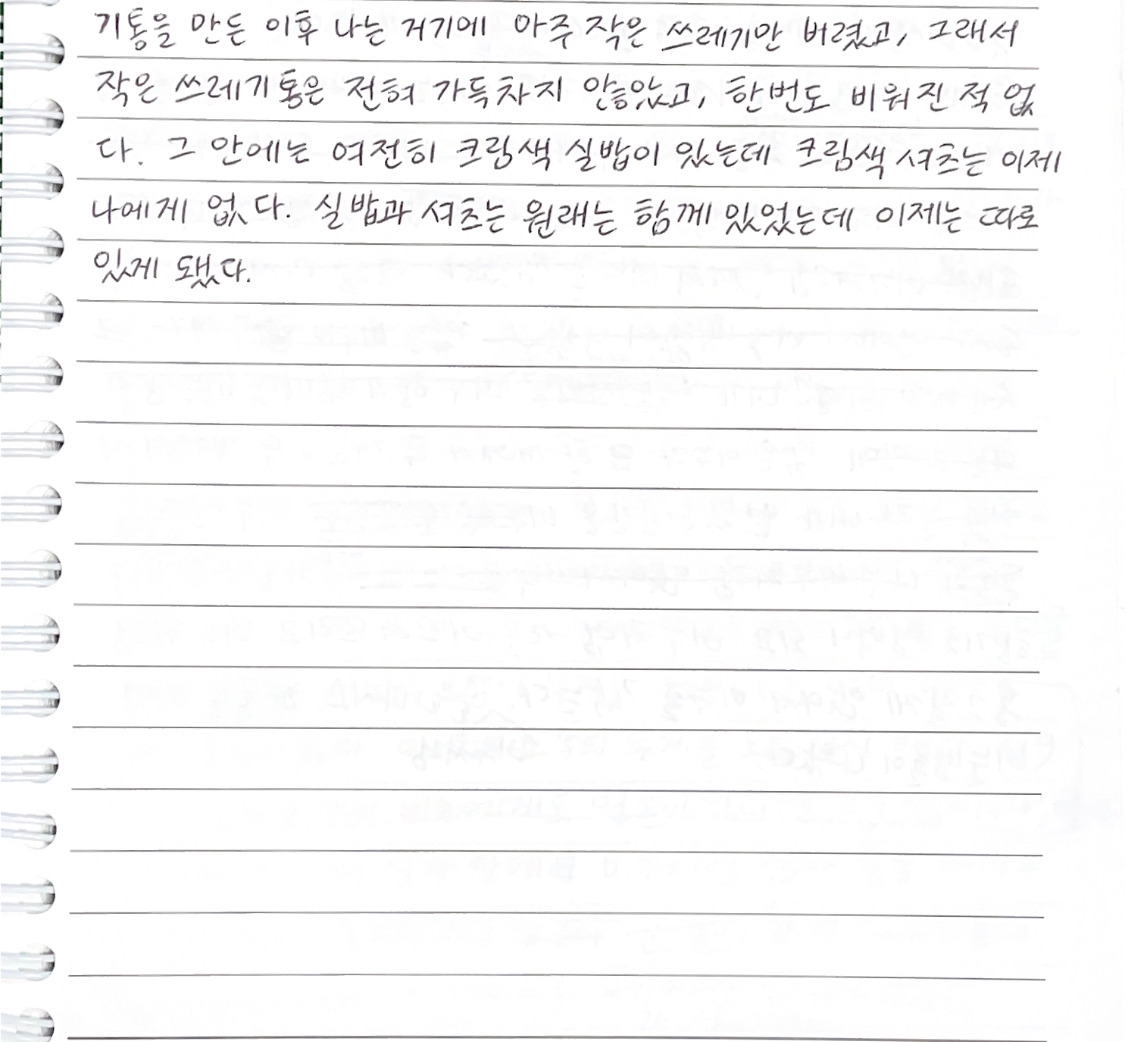 기통을 만든 이후 나는 거기에 아주 작은 쓰레기만 버렸고, 그래서
작은 쓰레기통은 전혀 가득차지 않았고, 한번도 비워진 적 없
다. 그 안에는 여전히 크림색 실밥이 있는데 크림색 셔츠는 이제
나에게 없다. 실밥과 셔츠는 원래는 함께 있었는데 이제는 따로
있게 됐다.